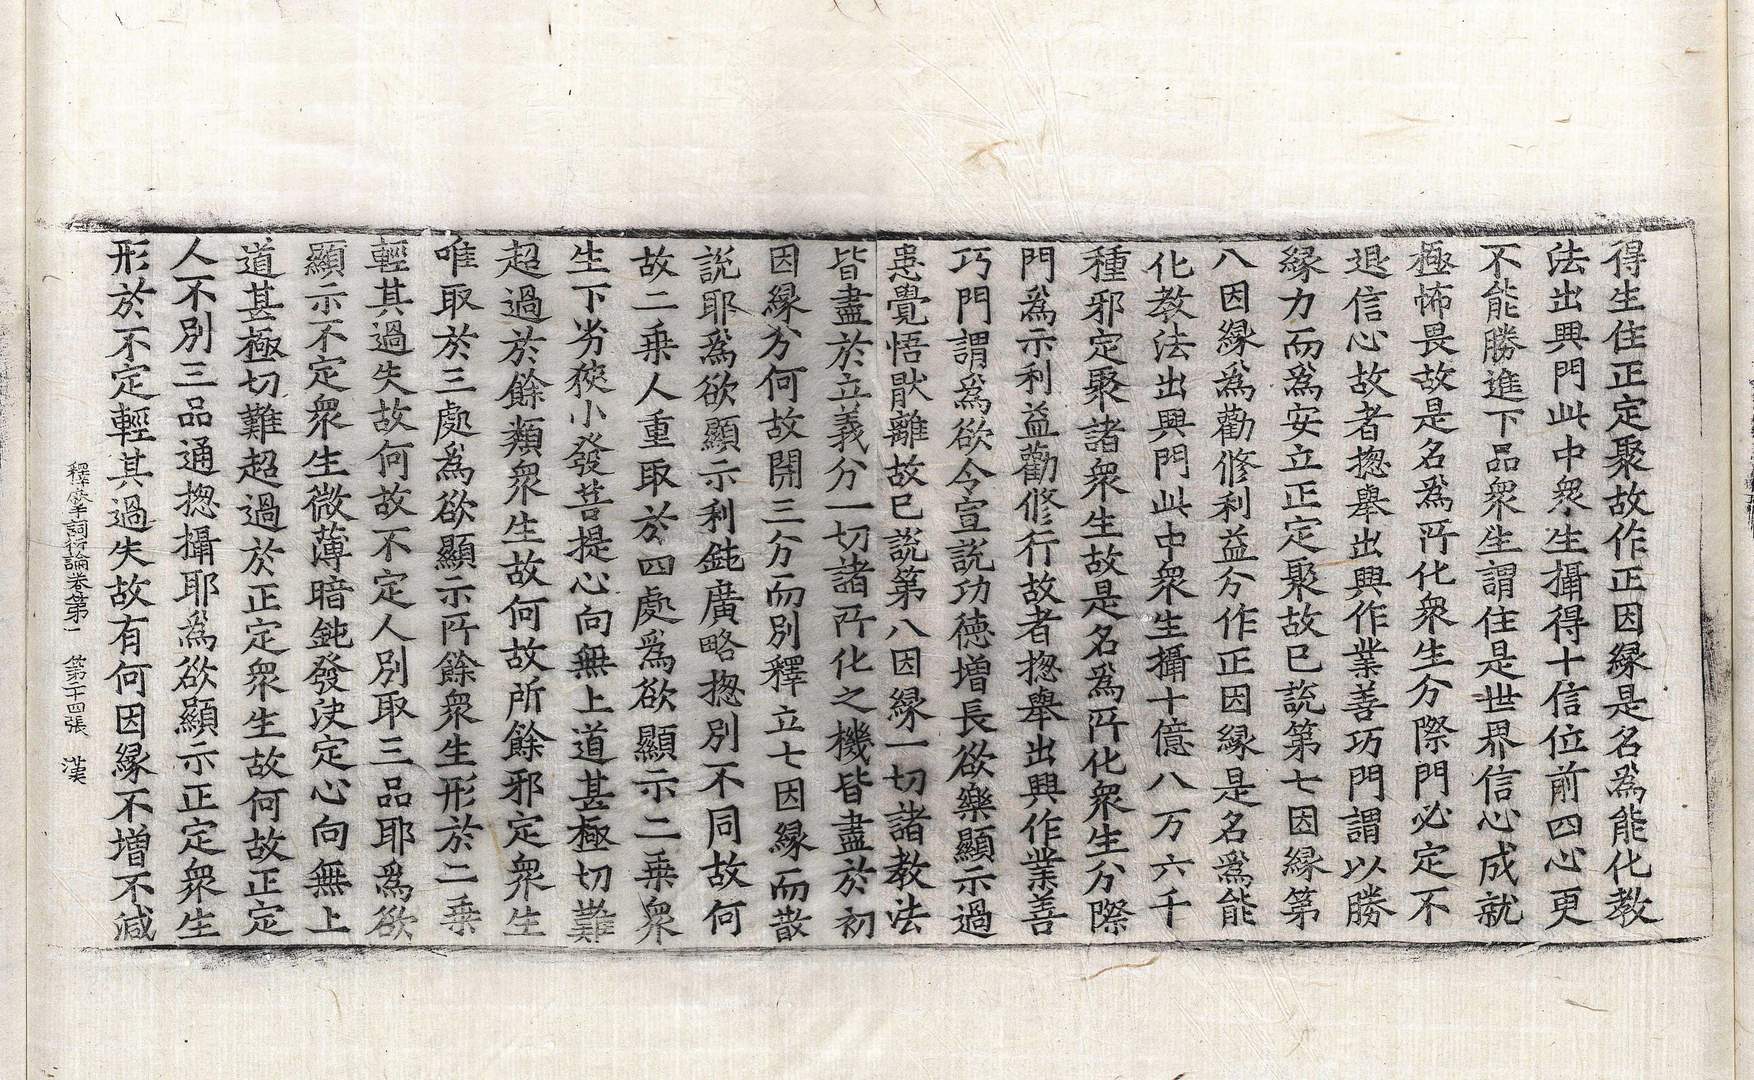 得生住正定聚故作正因縁是名爲能化教
法出興門此中衆生攝得十信位前四心更
不能勝進下品衆生謂住是世界信心成就
極怖畏故是名爲所化衆生分際門必定不
退信心故者揔舉出興作業善巧門謂以勝
縁力而爲安立正定聚故已說第七因縁第
八因縁爲勸修利益分作正因縁是名爲能
化教法出興門此中衆生攝十億八万六千
種邪定聚諸衆生故是名爲所化衆生分際
門爲示利益勸修行故者揔舉出興作業善
巧門謂爲欲令宣説功德增長欲樂顯示過
患覺悟猒離故已説第八因縁一切諸教法
皆盡於立義分一切諸所化之機皆盡於初
因縁分何故開三分而別釋立七因縁而散
説耶爲欲顯示利鈍廣略揔別不同故何
故二乗人重取於四處爲欲顯示二乗衆
生下劣狹小發菩提心向無上道甚極切難
超過於餘類衆生故何故所餘邪定衆生
唯取於三處爲欲顯示所餘衆生形於二乗
輕其過失故何故不定人別取三品耶爲欲
顯示不定衆生微薄暗鈍發决定心向無上
道甚極切難超過於正定衆生故何故正定
人不別三品通揔攝耶爲欲顯示正定衆生
形於不定輕其過失故有何因縁不增不減
釋摩訶衍論卷第一 第二十四張 漢